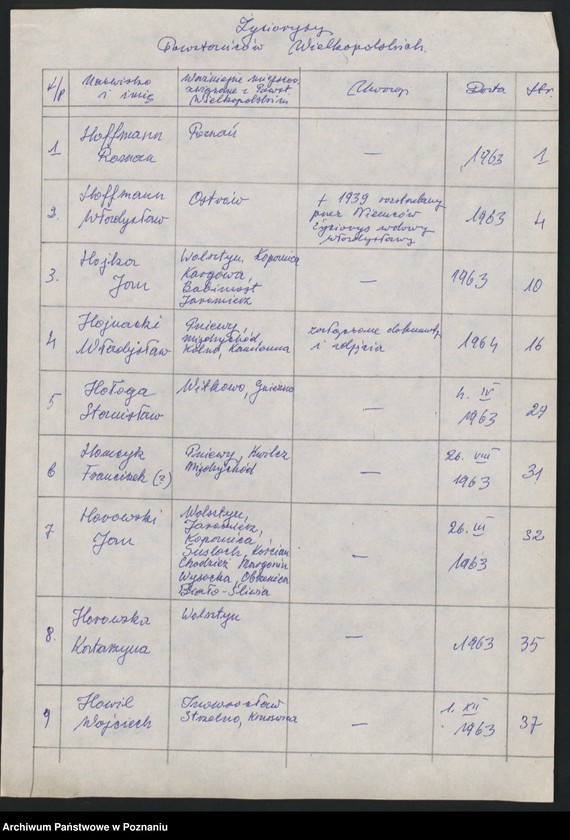 Życiorysy
Powstańców Wielkopolskich.
L/p
Nazwisko
i imię
Ważniejsze miejscow.
związane z Powst.
Wielkopolskim
Uwagi
Data
Str.
1
Hoffmann
Roman
Poznań
—
1963
1
2.
Hoffmann
Władysław
Ostrów
+ 1939 rozstrzelany
przez Niemców
Życiorys wdowy
Władysławy
1963
4
3.
Hojka
Jan
Wolsztyn, Kopanica
Kargowa,
Babimost
Jaromierz
—
1963
10
4
Hojnacki
Władysław
Pniewy,
Międzychód,
Kolno, Kamionna
załączone dokumenty
i zdjęcia
1964
16
5
Hołoga
Stanisław
Witkowo, Gniezno
—
4. IV
1963
29
6
Homczyk
Franciszek (?)
Pniewy, Kwilcz
Międzychód
—
26. VIII
1963
31
7
Horowski
Jan
Wolsztyn,
Jaromierz,
Kopanica,
Kościan
Chodzież Margonin
Wysocka, Obkanica
Biało-Śliwia
—
26. III
1963
32
8.
Horowska
Katarzyna
Wolsztyn
—
1963
35
9
Howil
Wojciech
Inowrocław
Strzelno, Kruszwica
—
1. XII
1963
37
Archiwum Państwowe w Poznaniu